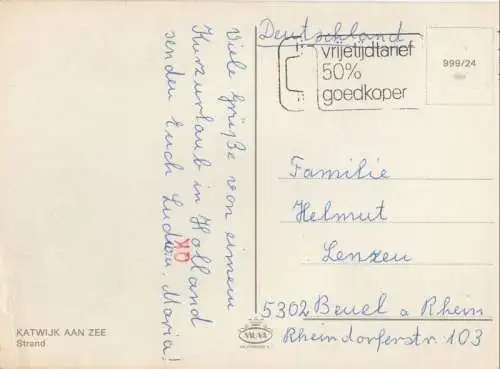 Viele Grüße von einem
Kurzurlaub in Holland
senden Euch Ludwin. Maria!
OK
KATWIJK AAN ZEE
Strand
Deutschland
vrijetijdtarief
50%
goedkoper
999/24
Familie
Helmut
Lenzen
5302 Beuel a Rhein
Rheindorferstr 103